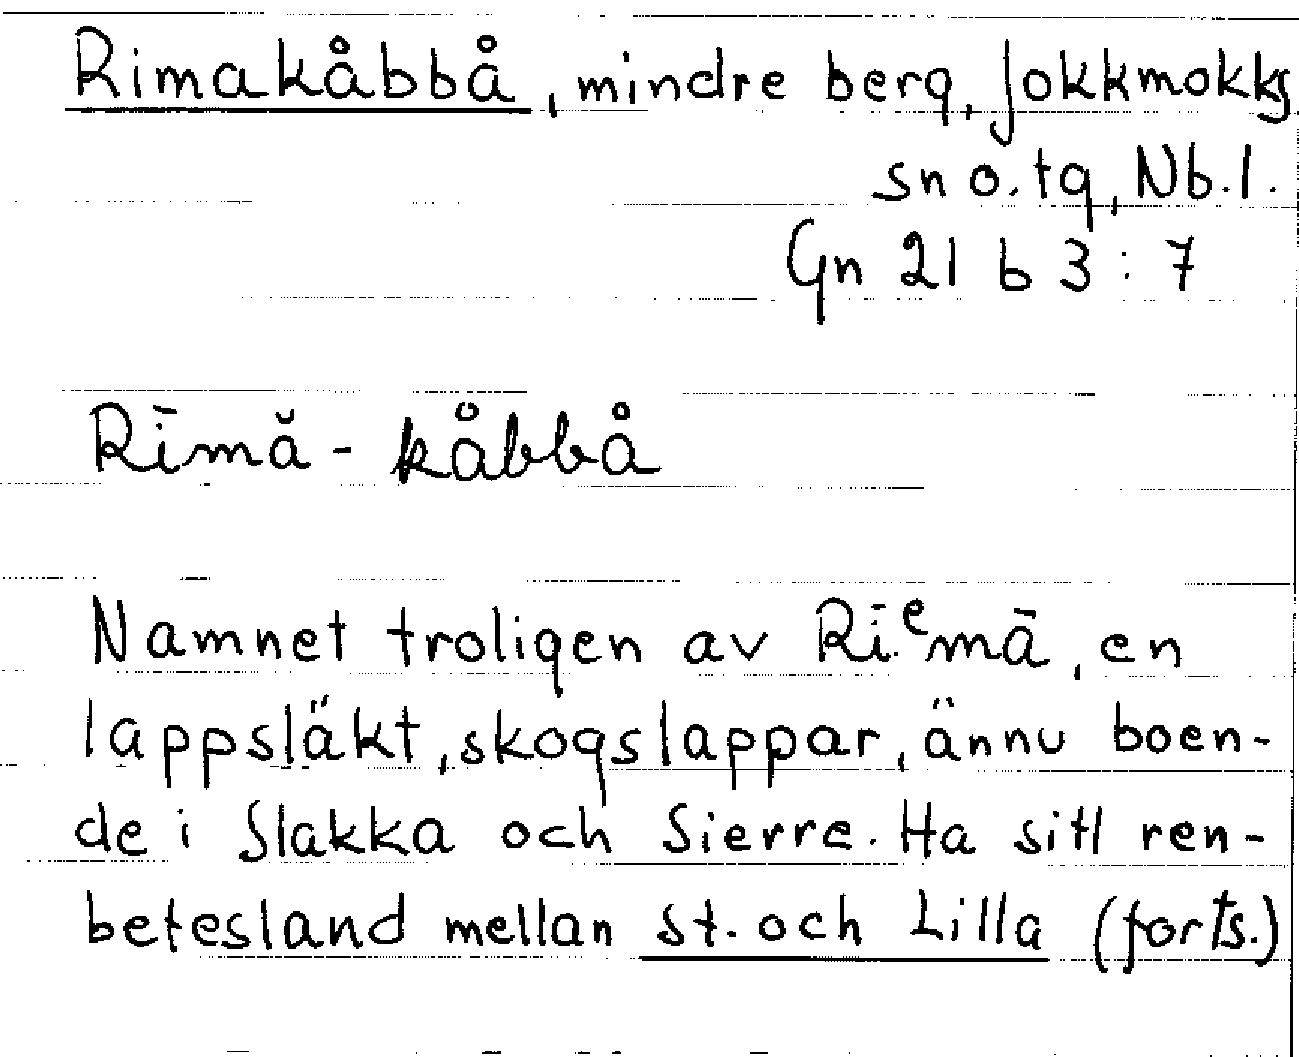 Rimakåbbå, mindre berg, Jokkmokks
sn o. tg, Nb. l.
Gn 21 b 3 : 7
Rīmă - kåbbå
Namnet troligen av Rī.ᵉmā, en
lappsläkt, skogslappar, ännu boen-
de i Slakka och Sierre. Ha sitt ren-
betesland mellan St. och Lilla (forts.)